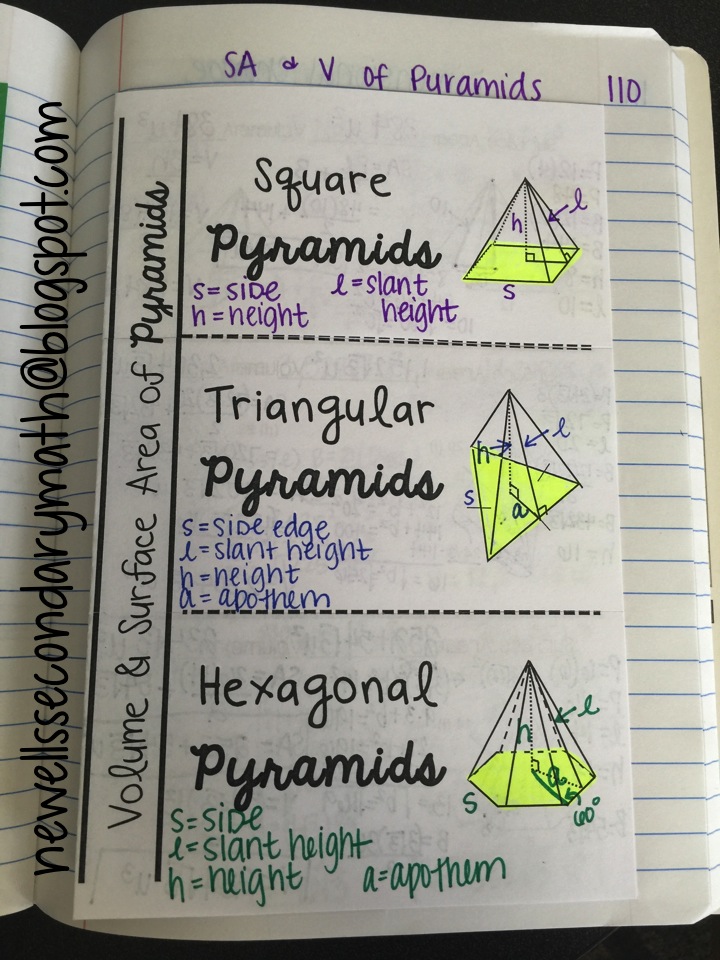 SA & V of Puramids 110
newellssecondarymath@blogspot.com
Volume & Surface Area of Pyramids
Square
Pyramids
s = side l = slant
h = height height
h
l
s
Triangular
Pyramids
s = side edge
l = slant height
h = height
a = apothem
h
l
s
a
Hexagonal
Pyramids
s = side
l = slant height
h = height a = apothem
h
l
a
s
60°